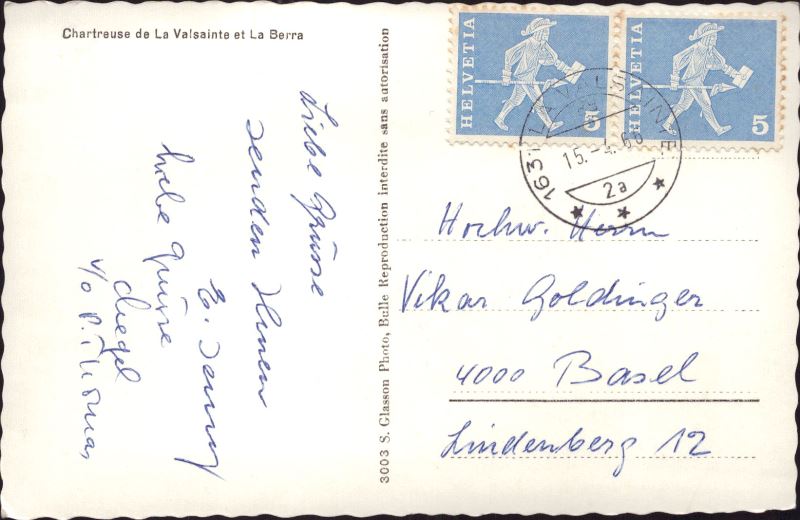 Chartreuse de La Valsainte et La Berra
Liebe Grüsse
senden Ihnen
liebe Grüsse
3003 S. Glasson Photo, Bulle Reproduction interdite sans autorisation
HELVETIA 5
HELVETIA 5
1631 LA VALSAINTE
15.-4.66
2a
Hochw. Herrn
Vikar Goldinger
4000 Basel
Lindenberg 12